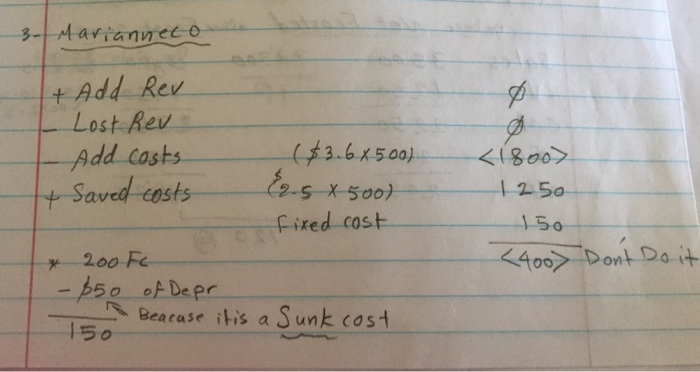 3- Marianneco
+ Add Rev ∅
- Lost Rev ∅
- Add costs ($3.6 x 500) <1800>
+ Saved costs ($2.5 x 500) 1250
Fixed cost 150
<400> Don't Do it
* 200 Fc
- $50 of Depr
Beacase it is a Sunk cost
150